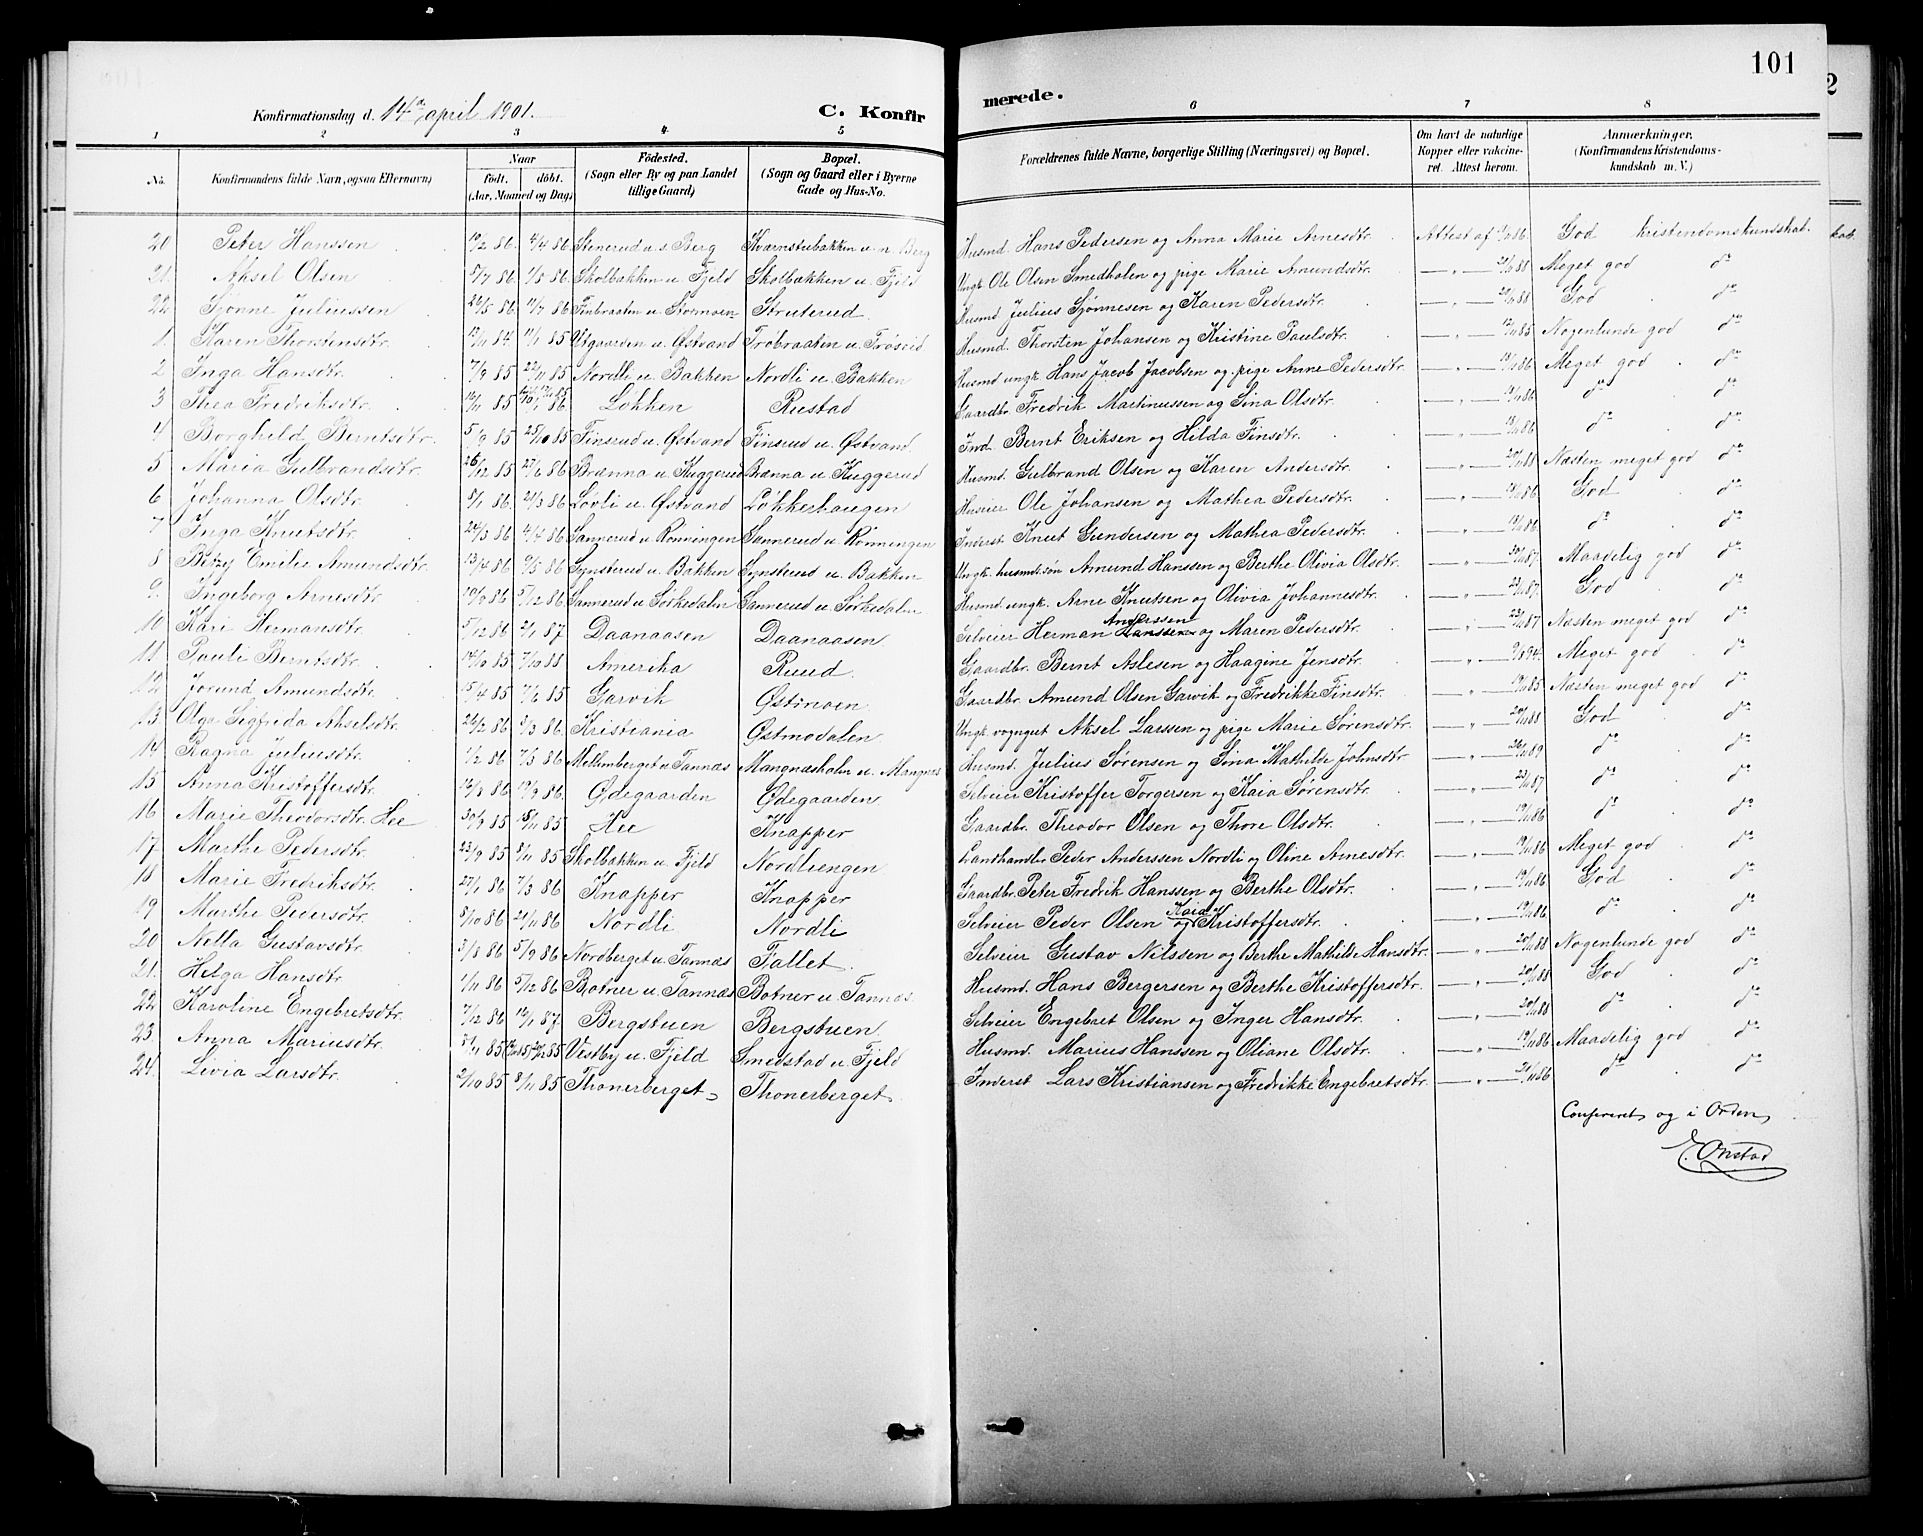 101
Konfirmationsdag d. 14de april 1901.
C. Konfir
merede.
1 2 3 4 5 6 7 8
No. Konfirmandens fulde Navn, ogsaa Efternavn) Naar født. døbt. (Aar, Maaned og Dag) Fødested. (Sogn eller By og paa Landet tillige Gaard) Bopæl. (Sogn og Gaard eller i Byerne Gade og Hus-No. Forældrenes fulde Navne, borgerlige Stilling (Næringsvei) og Bopæl. Om havt de naturlige Kopper eller vakcineret. Attest herom. Anmærkninger. (Konfirmandens Kristendomskundskab m. V.)
20 Peter Hanssen 19/2 86. 4/4 86 Stenerud u. s. Berg Kværnstubakken u. n. Berg Husmd. Hans Pedersen og Anna Marie Arnesdtr. Attest af God kristendomskundskab.
21. Aksel Olsen 5/7 86. 1/8 86 Skolbakken u. Fjeld Skolbakken u. Fjeld Ungk. Ole Olsen Smedholen og pige Marie Amundsdtr. Meget god do
22 Gjønne Juliussen 26/5 86 11/7 86 Finbraaten u. Stormoen Struterud Husmd. Julius Gjønnesen og Karen Pedersdtr. God do
1. Karen Thorstensdtr. 13/11 84 11/1 85 Utgaarden u. Østvand Frøbraaten u. Frøseid Husmd. Thorsten Johansen og Kristine Paulsdtr. Nogenlunde god do
2 Inga Hansdtr. 7/9 85 22/11 85 Nordli u. Bakken Nordli u. Bakken Husmd ungk. Hans Jacob Jacobsen og pige Anne Pedersdtr. Meget god do
3 Thea Fredriksdtr. Løkken Rustad Gaardbr. Fredrik Martinussen og Lina Olsdtr. do do
4 Borghild Berntsdtr. 5/9 85 25/10 85 Finsrud u. Østvand Finsrud u. Østvand Ind. Bernt Eriksen og Hilda Finsdtr. do do
5 Maria Gulbrandsdtr. 26/12 85 27/6 86 Brænna u. Kuggerud Brænna u. Kuggerud Husmd. Gulbrand Olsen og Karen Andersdtr. Næsten meget god do
6 Johanna Olsdtr. 5/1 86 21/3 86 Løvli u. Østvand Løkkehaugen Huseier Ole Johansen og Mathea Pedersdtr. God do
7 Inga Knutsdtr. 24/3 86 4/4 86 Sannerud u. Rønningen Sannerud u. Rønningen Inderst Knut Gundersen og Mathea Pedersdtr. do do
8 Betzy Emilie Amundsdtr. 13/4 86 9/5 86 Lynsterud u. Bakken Lynsterud u. Bakken Ungk. husmds.søn Amund Hanssen og Berthe Olivia Olsdtr. Maadelig god do
9. Ingeborg Arnesdtr. 5/12 86 Sannerud u. Sørkedalen Sannerud u. Sørkedalen Husmd. ungk. Arne Knutsen og Olivia Johannesdtr. God do
10 Kari Hermansdtr. 5/12 86 2/1 87 Daanaasen Daanaasen Selveier Herman Hanssen Anderssen og Maren Pedersdtr. Næsten meget god do
11 Pauli Berntsdtr. 14/10 85 7/10 88 Amerika Ruud Gaardbr. Bernt Aslesen og Haagine Jensdtr. Meget god do
12 Jorund Amundsdtr. 15/4 85 7/6 85 Garvik Østmoen Gaardbr. Amund Olsen Garvik og Fredrikke Finsdtr. Næsten meget god do
13 Olga Sigfrida Akselsdtr. 26/2 86 Kristiania Østmodalen Ungk. vogngut Aksel Larssen og pige Marie Sørensdtr. God do
14 Ragna Juliusdtr. 1/2 86 7/3 86 Mellemberget u. Tannæs Mangnæsholm u. Mangnæs Husmd. Julius Sørensen og Lina Mathilde Johnsdtr. do do
15 Anna Kristoffersdtr. 19/9 86. Ødegaarden Ødegaarden Selveier Kristoffer Torgersen og Kaia Sørensdtr. do do
16 Marie Theodorsdtr. Hee 30/9 85 15/11 85 Hee Knapper Gaardbr. Theodor Olsen og Thore Olsdtr. do do
17 Marthe Pedersdtr. 23/9 85 8/11 85 Skolbakken u. Fjeld Nordliengen Landhandler Peder Anderssen Nordli og Oline Arnesdtr. Meget god do
18 Marie Fredriksdtr. 27/1 86 7/3 86 Knapper Knapper Gaardbr. Peter Fredrik Hanssen og Berthe Olsdtr. God do
19 Marthe Pedersdtr. 8/10 86 21/11 86 Nordli Nordli Selveier Peder Olsen og Kaia Kristoffersdtr. do do
20 Nella Gustavsdtr. 3/8 86 5/9 86 Nordberget u. Tannæs Fallet Selveier Gustav Nilssen og Berthe Mathilde Hansdtr. Nogenlunde god do
21. Helga Hansdtr. 1/11 86 5/12 86 Botner u. Tannæs Botner u. Tannæs Husmd. Hans Bergersen og Berthe Kristoffersdtr. God do
22. Karoline Engebretsdtr. 7/12 86 16/1 87. Bergstuen Bergstuen Selveier Engebret Olsen og Inger Hansdtr. do do
23. Anna Mariusdtr. 5/11 85 Vestby u. Fjeld Smedstad u. Fjeld Husmd. Marius Hanssen og Oliane Olsdtr. Maadelig god do
24. Livia Larsdtr. 2/10 85 8/11 85 Thonerberget Thonerberget Inderst Lars Kristiansen og Fredrikke Engebretsdtr. do do
Confereret og i Orden
E. Onstad